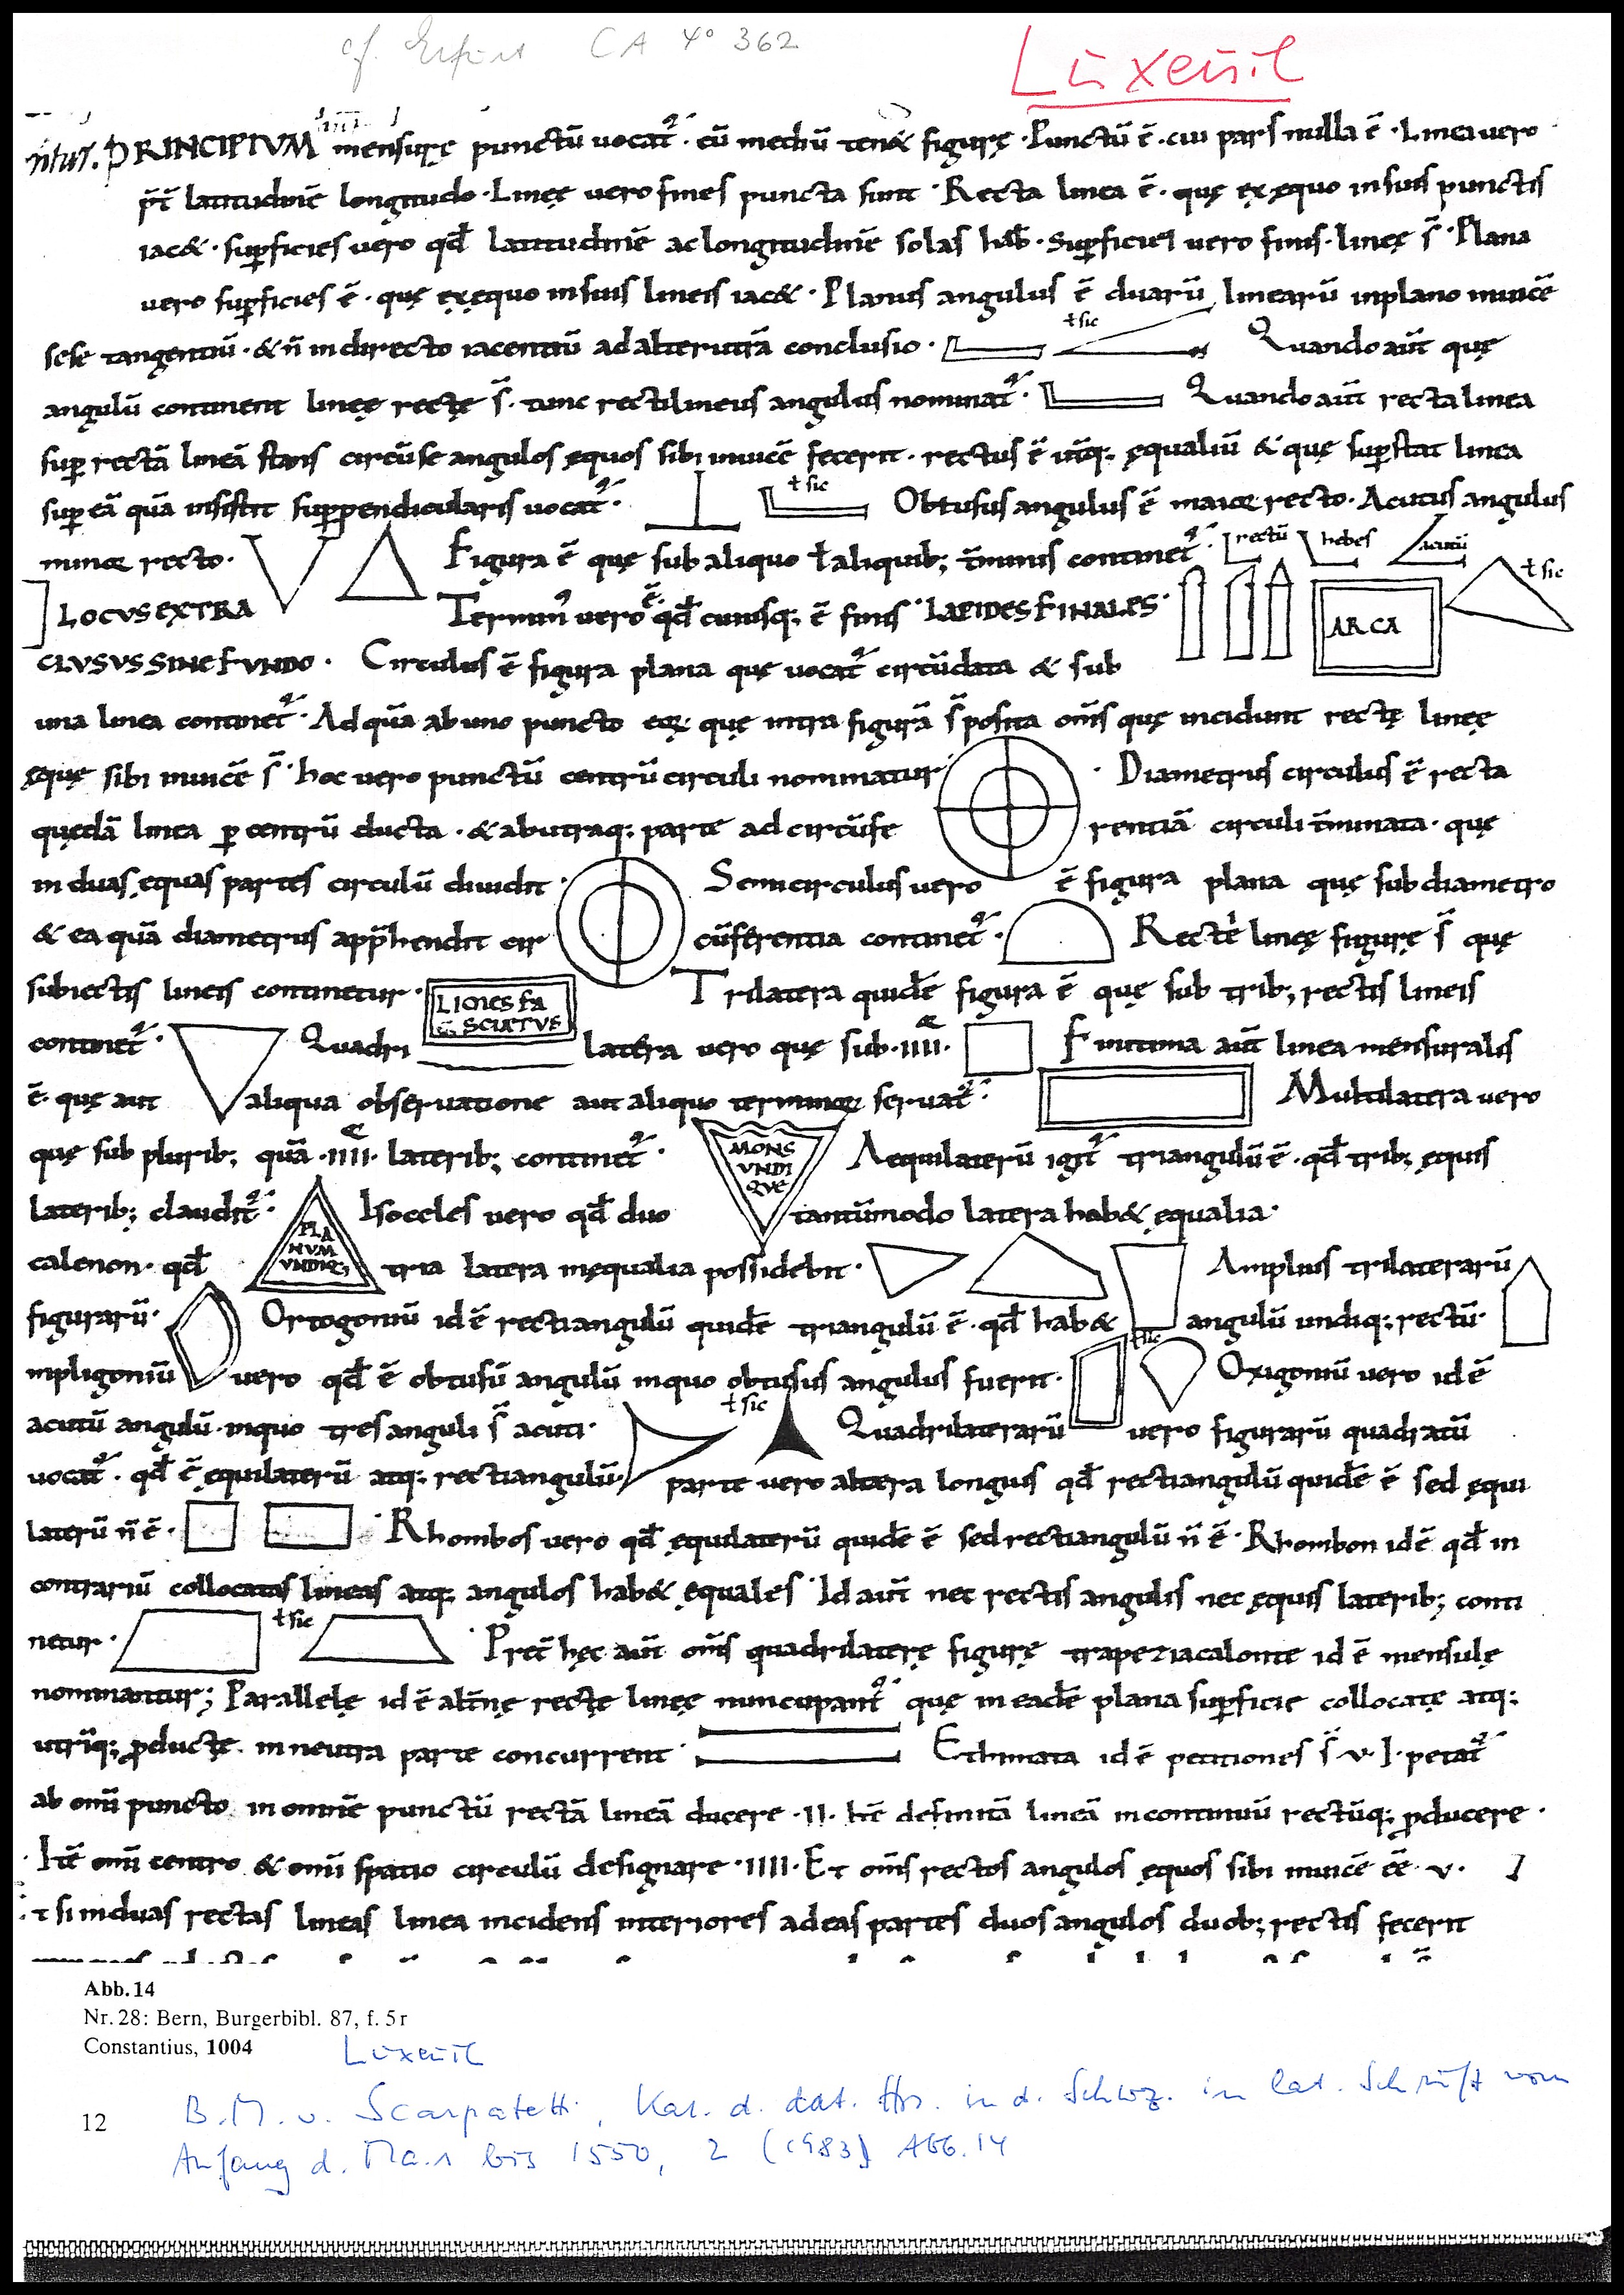 cf. Erfurt CA 4° 362
Luxeuil
PRINCIPIVM mensurę punctū uocat᷑ · cū mediū ten& figurę · Punctū ē · cui pars nulla ē · Linea uero
p̄t̄ latitudinē longitudo · Linęę uero fines puncta sunt · Recta linea ē · quę ex ęquo in suis punctis
iac& · sup̱ficies uero qđ latitudinē ac longitudinē solas hab̄ · Sup̱ficiei uero finis · linęę s̄ · Plana
uero sup̱ficies ē · quę ex ęquo in suis lineis iac& · Planus angulus ē duarū linearū in plano inuicē
sese tangentiū · & n̄ in directo iacentiū ad alterutrā conclusio · ł sic Quando aut̄ quę
angulū continent linęę rectę s̄ · tunc rectilineus angulus nominat᷑ · Quando aut̄ recta linea
sup̱ rectā lineā stans circū se angulos ęquos sibi inuicē fecerit · rectus ē ut̄q; ęqualiū & quę sup̱stat linea
sup̱ eā quā insistit sup̱pendicularis uocat᷑ · ł sic Obtusus angulus ē maior recto · Acutus angulus
minor recto · Figura ē quę sub aliquo ł aliquib; t̄minis continet᷑ · rectū hebes acutū
LOCVS EXTRA Termin᷒ uero ē qđ cuiusq; ē finis · LAPIDES FINALES · ARCA ł sic
CLVSVS SINE FVNDO · Circulus ē figura plana quę uocat᷑ circūdata & sub
una linea continet᷑ · Ad quā ab uno puncto eoꝝ quę intra figurā s̄ posita om̄s quę incidunt rectę linęę
ęquę sibi inuicē s̄ · hoc uero punctū centrū circuli nominatur · Diametrus circulus ē recta
quędā linea p̱ centrū ducta · & ab utraq; parte ad circūfe rentiā circuli t̄minata · quę
in duas ęquas partes circulū diuidit · Semicirculus uero ē figura plana quę sub diametro
& ea quā diametrus app̄hendit cir cūferentia continet᷑ · Rectę linęę figurę s̄ quę
subiectis lineis continetur · LIMES FA SCIATVS Trilatera quidē figura ē quę sub trib; rectis lineis
continet᷑ · Quadri latera uero quę sub · IIII · Finitima aut̄ linea mensuralis
ē · quę aut aliqua obseruatione aut aliquo terminoꝝ seruat᷑ · Multilatera uero
quę sub plurib; quā · IIII · laterib; continet᷑ · MONS VNDI QVE Aequilaterū igit᷑ triangulū ē · qđ trib; ęquis
laterib; claudit᷑ · PLA NVM VNDIQ; Isoceles uero qđ duo tantūmodo latera hab& ęqualia ·
calenon · qđ tria latera inęqualia possidebit · Amplius trilaterarū
figurarū · Ortogoniū id ē rectiangulū quidē triangulū ē · qđ hab& angulū undiq; rectū ·
inpligoniū uero qđ ē obtusū angulū in quo obtusus angulus fuerit · ł sic Oxigoniū uero id ē
acutū angulū · in quo tres anguli s̄ acuti · ł sic Quadrilaterarū uero figurarū quadratū
uocat᷑ · qđ ē ęquilaterū atq; rectiangulū · parte uero altera longius qđ rectiangulū quidē ē sed ęqui
laterū n̄ ē · Rhombos uero qđ ęquilaterū quidē ē sed rectiangulū n̄ ē · Rhombon id ē qđ in
contrariū collocatas lineas atq; angulos hab& ęquales · Id aut̄ nec rectis angulis nec ęquis laterib; conti
netur · ł sic Pret̄ hęc aut̄ om̄s quadrilaterę figurę trapezia calonte id ē mensulę
nominantur; Parallelę id ē alt̄nę rectę linęę nuncupant᷑ quę in eadē plana sup̱ficie collocatę atq;
utriq; ꝓductę · in neutra parte concurrent · Ethimata id ē petitiones s̄ · v · I · petat᷑
ab om̄i puncto in omnē punctū rectā lineā ducere · II · Itē definitā lineā in continuū rectūq; ꝓducere ·
Itē om̄i centro & om̄i spatio circulū designare · IIII · Et om̄s rectos angulos ęquos sibi inuicē eē · v ·
t si in duas rectas lineas linea incidens interiores ad eas partes duos angulos duob; rectis fecerit
Abb. 14
Nr. 28: Bern, Burgerbibl. 87, f. 5r
Constantius, 1004
Luxeuil
B. M. v. Scarpatetti, Kat. d. dat. Hss. in d. Schwz. in lat. Schrift vom
Anfang d. MA.s bis 1550, 2 (1983) Abb. 14
12